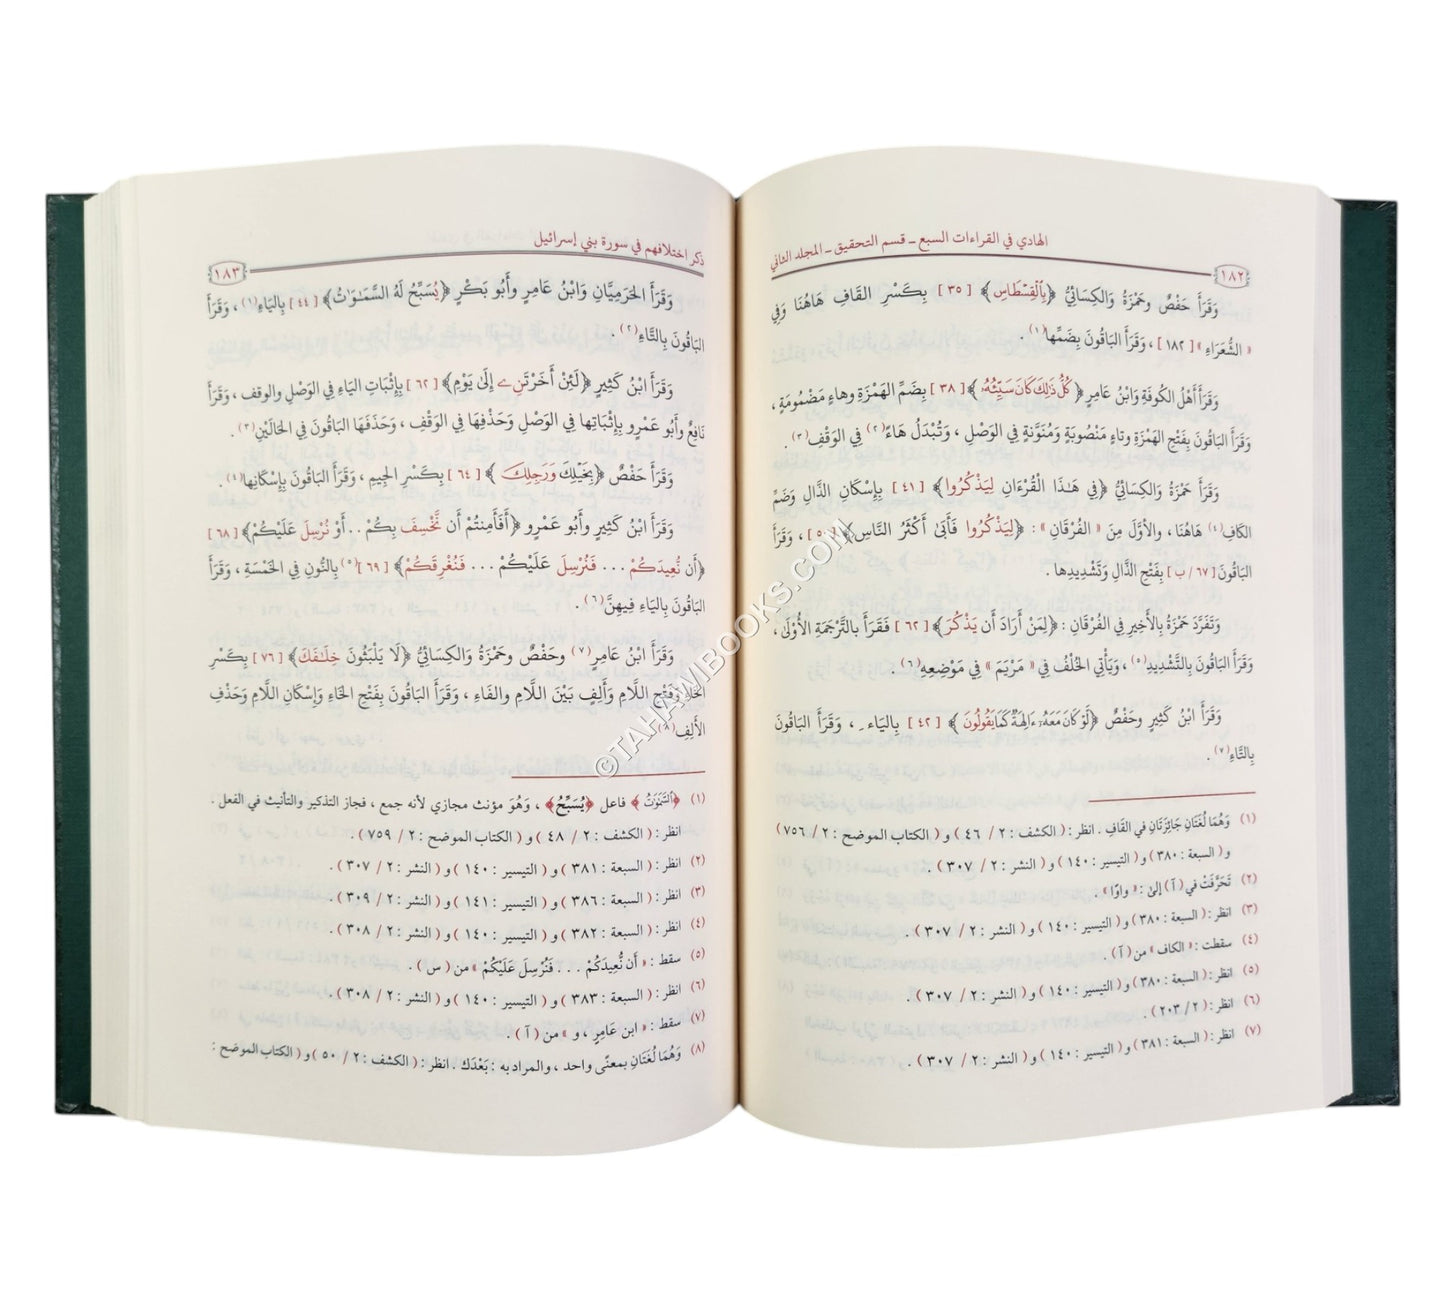 الهادي في القراءات السبع - قسم التحقيق - المجلد الثاني
١٨٢
وَقَرَأَ حَفْصٌ وَحَمْزَةُ وَالكِسَائِيُّ ﴿بِالْقِسْطَاسِ﴾ [٣٥] بِكَسْرِ القَافِ هَاهُنَا وَفِي
« الشُّعَرَاءِ » [١٨٢] ، وَقَرَأَ البَاقُونَ بِضَمِّها(١) .
وَقَرَأَ أَهْلُ الكُوفَةِ وَابْنُ عَامِرٍ ﴿كُلُّ ذَٰلِكَ كَانَ سَيِّئُهُۥ﴾ [٣٨] بِضَمِّ الهَمْزَةِ وهاءٍ مَضْمُومَةٍ ،
وَقَرَأَ البَاقُونَ بِفَتْحِ الهَمْزَةِ وتاءٍ مَنْصُوبَةٍ وَمُنَوَّنَةٍ فِي الوَصْلِ ، وَتُبْدَلُ هَاءً(٢) فِي الوَقْفِ(٣) .
وَقَرَأَ حَمْزَةُ وَالكِسَائِيُّ ﴿فِي هَـٰذَا الْقُرْءَانِ لِيَذْكُرُوا﴾ [٤١] بِإِسْكَانِ الذَّالِ وَضَمِّ
الكَافِ(٤) هَاهُنَا ، والأوَّلَ مِنَ « الفُرْقَانِ » : ﴿لِيَذْكُرُوا فَأَبَىٰ أَكْثَرُ النَّاسِ﴾ [٥٠] ، وَقَرَأَ
البَاقُونَ [٦٧/ب] بِفَتْحِ الذَّالِ وَتَشْدِيدِها .
وَتَفَرَّدَ حَمْزَةُ بِالأَخِيرِ فِي الفُرْقَانِ : ﴿لِمَنْ أَرَادَ أَن يَذْكُرَ﴾ [٦٢] فَقَرَأَ بالتَّرْجَمَةِ الأُوْلَىٰ ،
وَقَرَأَ البَاقُونَ بِالتَّشْدِيدِ(٥) ، وَيَأْتِي الخُلْفُ فِي « مَرْيَمَ » فِي مَوْضِعِهِ(٦) .
وَقَرَأَ ابْنُ كَثِيرٍ وحَفْصٌ ﴿لَوْ كَانَ مَعَهُۥٓ ءَالِهَةٌ كَمَا يَقُولُونَ﴾ [٤٢] بِاليَاءِ ، وَقَرَأَ البَاقُونَ
بِالتَّاءِ(٧) .
(١) وَهُمَا لُغَتَانِ جَائِزَتَانِ في القَافِ . انظر : (الكشف : ٢ / ٤٦) و(الكتاب الموضح : ٢ / ٧٥٦)
و(السبعة : ٣٨٠) و(التيسير : ١٤٠) و(النشر : ٢ / ٣٠٧) .
(٢) تَحَرَّفَتْ في (آ) إلىٰ : « واوًا » .
(٣) انظر : (السبعة : ٣٨٠) و(التيسير : ١٤٠) و(النشر : ٢ / ٣٠٧) .
(٤) سقطت : « الكاف » من (آ) .
(٥) انظر : (السبعة : ٣٨٠) و(التيسير : ١٤٠) و(النشر : ٢ / ٣٠٧) .
(٦) انظر : (٢ / ٢٠٣) .
(٧) انظر : (السبعة : ٣٨١) و(التيسير : ١٤٠) و(النشر : ٢ / ٣٠٧) .
ذكر اختلافهم في سورة بني إسرائيل
١٨٣
وَقَرَأَ الحَرَمِيَّانِ وَابْنُ عَامِرٍ وأَبُو بَكْرٍ ﴿يُسَبِّحُ لَهُ السَّمَـٰوَٰتُ﴾ [٤٤] بِاليَاءِ(١) ، وَقَرَأَ
البَاقُونَ بِالتَّاءِ(٢) .
وَقَرَأَ ابْنُ كَثِيرٍ ﴿لَئِنْ أَخَّرْتَنِۦ إِلَىٰ يَوْمِ﴾ [٦٢] بِإِثْبَاتِ اليَاءِ فِي الوَصْلِ والوقف ، وَقَرَأَ
نَافِعٌ وأَبُو عَمْرٍو بِإِثْبَاتِها فِي الوَصْلِ وَحَذْفِهَا فِي الوَقْفِ ، وَحَذَفَهَا البَاقُونَ فِي الحَالَيْنِ(٣) .
وَقَرَأَ حَفْصٌ ﴿بِخَيْلِكَ وَرَجِلِكَ﴾ [٦٤] بِكَسْرِ الجِيمِ ، وَقَرَأَ البَاقُونَ بِإِسْكَانِها(٤) .
وَقَرَأَ ابْنُ كَثِيرٍ وأَبُو عَمْرٍو ﴿أَفَأَمِنتُمْ أَن نَّخْسِفَ بِكُمْ ... أَوْ نُرْسِلَ عَلَيْكُمْ﴾ [٦٨]
﴿أَن نُّعِيدَكُمْ ... فَنُرْسِلَ عَلَيْكُمْ ... فَنُغْرِقَكُمْ﴾ [٦٩](٥) بِالنُّونِ فِي الخَمْسَةِ ، وَقَرَأَ
البَاقُونَ بِاليَاءِ فِيهِنَّ(٦) .
وَقَرَأَ ابْنُ عَامِرٍ(٧) وحَفْصٌ وحَمْزَةُ والكِسَائِيُّ ﴿لَا يَلْبَثُونَ خِلَـٰفَكَ﴾ [٧٦] بِكَسْرِ
الخَاءِ وَفَتْحِ اللَّامِ وَأَلِفٍ بَيْنَ اللَّامِ والفَاءِ ، وَقَرَأَ البَاقُونَ بِفَتْحِ الخَاءِ وَإِسْكَانِ اللَّامِ وَحَذْفِ
الأَلِفِ(٨) .
(١) ﴿السَّمَـٰوَٰتُ﴾ فاعل ﴿يُسَبِّحُ﴾ ، وَهُوَ مؤنث مجازي لأنه جمع ، فجاز التذكير والتأنيث في الفعل .
انظر : (الكشف : ٢ / ٤٨) و(الكتاب الموضح : ٢ / ٧٥٩) .
(٢) انظر : (السبعة : ٣٨١) و(التيسير : ١٤٠) و(النشر : ٢ / ٣٠٧) .
(٣) انظر : (السبعة : ٣٨٦) و(التيسير : ١٤١) و(النشر : ٢ / ٣٠٩) .
(٤) انظر : (السبعة : ٣٨٢) و(التيسير : ١٤٠) و(النشر : ٢ / ٣٠٨) .
(٥) سقط : « أَن نُّعِيدَكُمْ ... فَنُرْسِلَ عَلَيْكُمْ » من (س) .
(٦) انظر : (السبعة : ٣٨٣) و(التيسير : ١٤٠) و(النشر : ٢ / ٣٠٨) .
(٧) سقط : « ابن عَامِرٍ ، و » من (آ) .
(٨) وَهُمَا لُغَتَانِ بمعنًى واحد ، والمراد به : بَعْدَك . انظر : (الكشف : ٢ / ٥٠) و(الكتاب الموضح :
©TAHAWIBOOKS.COM